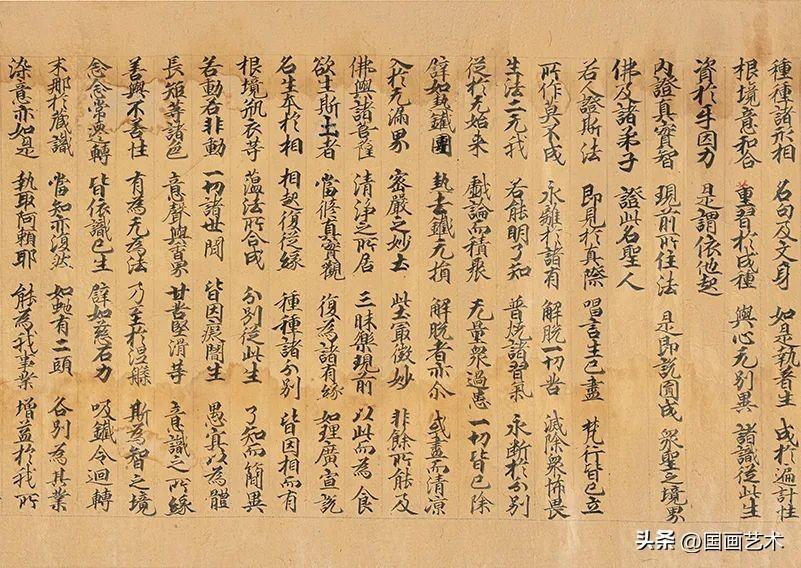 種種諸形相 名句及文身 如是執者生 成於遍計性
根境意和合 重習於成種 與心无別異 諸識從此生
資於牛因力 是謂依他起
內證真實智 現前所住法 是即說圓成 衆聖之境界
佛及諸弟子 證此名聖人
若人證斯法 即見於真際 唱言生已盡 梵行皆已立
所作莫不成 永離於諸有 解脫一切苦 滅除衆怖畏
生法二无我 若能明了知 普燒諸習氣 永斷於分別
從於无始來 戲論而積聚 无量衆過患 一切皆已除
譬如熱鐵團 熱去鐵无損 解脫者亦尒 或盡而清凉
入於无漏界 密嚴之妙土 此土最微妙 非餘所能及
佛與諸菩薩 清淨之所居 三昧樂現前 以此而為食
欲生斯土者 當修真實觀 復為諸有緣 如理廣宣說
名生本於相 相起復從緣 種種諸分別 皆因相而有
根境瓶衣等 蘊法所合成 分別從此生 了知而簡異
若動若非動 一切諸世間 皆因癡闇生 愚冥以為體
長短等諸色 音聲與香界 甘苦堅滑等 意識之所緣
善與不善性 有為无為法 乃至於涅槃 斯為智之境
念念常遷轉 皆依識已生 譬如慈石力 吸鐵令迴轉
末那於藏識 當知亦復然 如虵有二頭 各別為其業
染意亦如是 執取阿賴耶 能為我事業 增益於我所
头条 @国画艺术